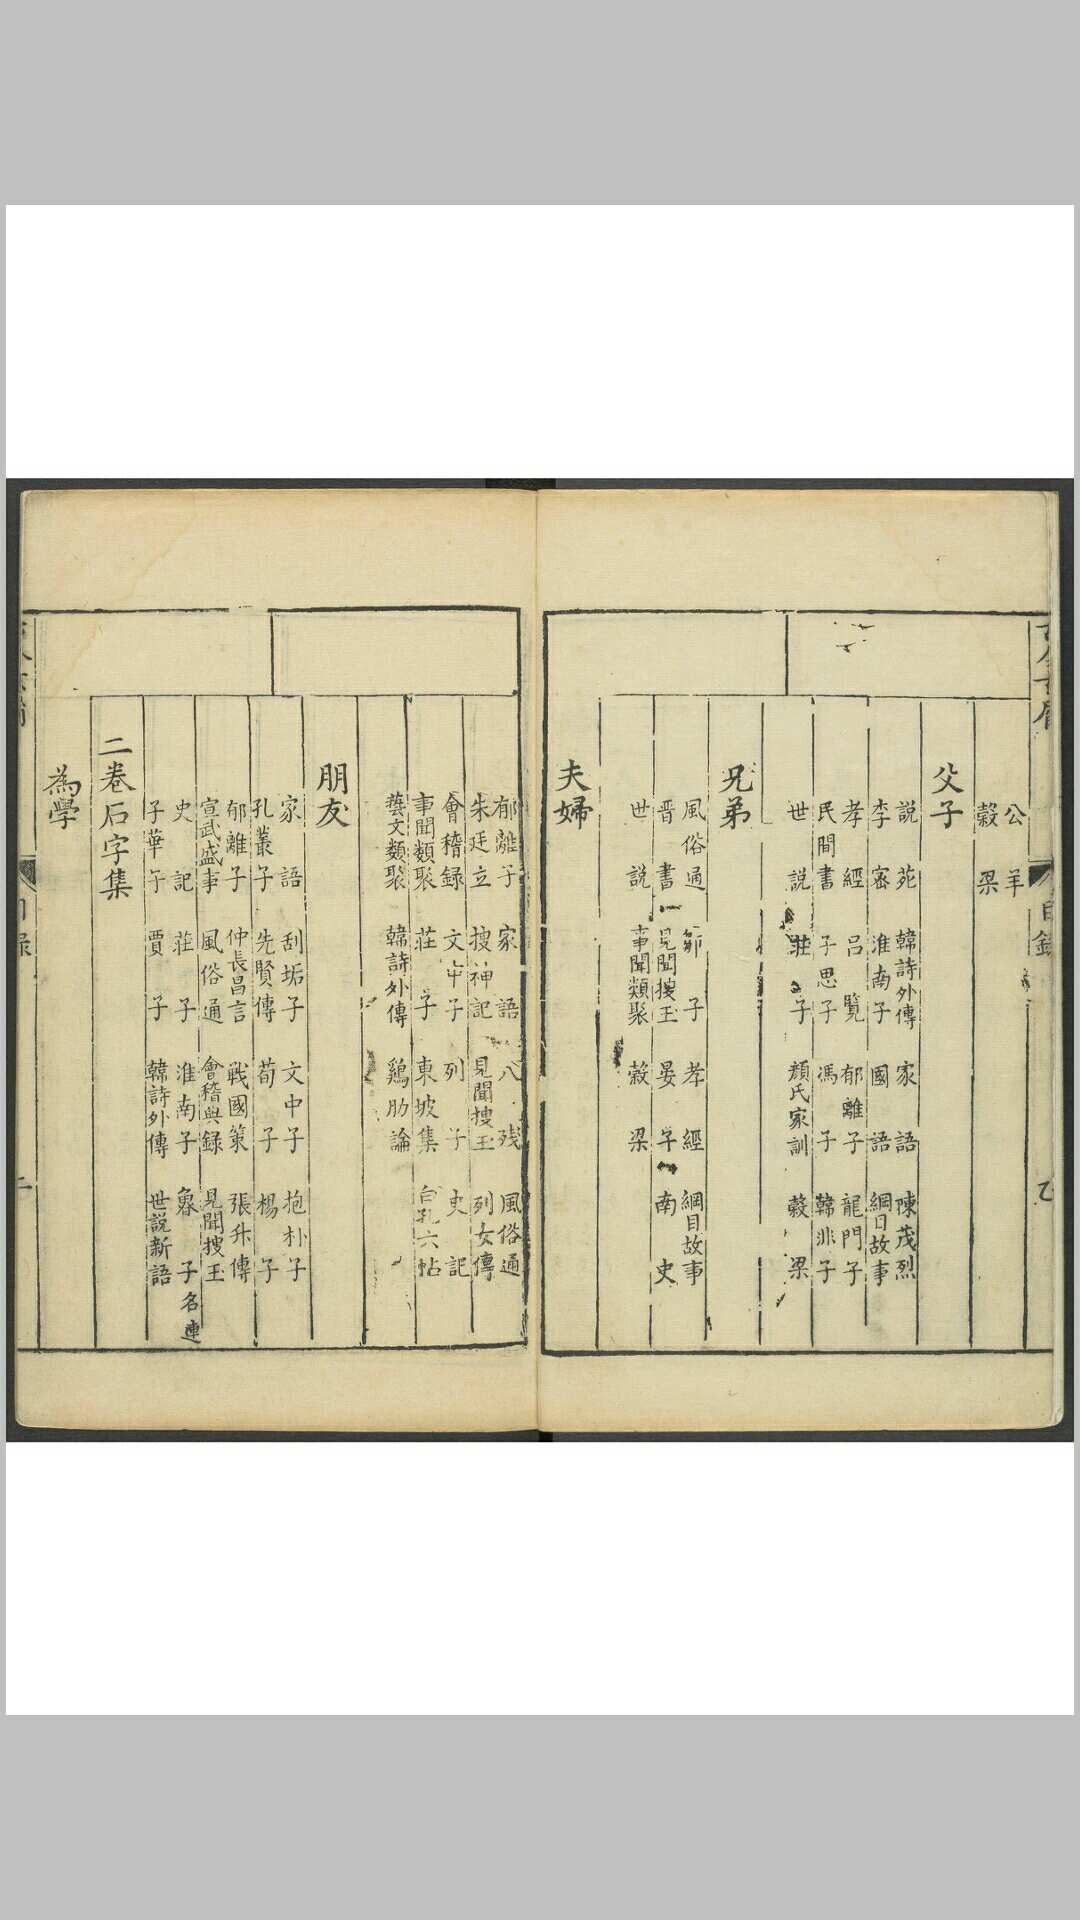 公羊
穀梁
父子
說苑 韓詩外傳 家語 陳茂烈
李密 淮南子 國語 綱目故事
孝經 呂覽 郁離子 龍門子
民間書 子思子 馮子 韓非子
世說 莊子 顏氏家訓 穀梁
兄弟
風俗通 鄒子 孝經 綱目故事
晋書 見聞搜玉 晏子 南史
世說 事聞類聚 穀梁
夫婦
郁離子 家語 八残 風俗通
朱廷立 搜神記 見聞搜玉 列女傳
會稽録 文中子 列子 史記
事聞類聚 莊子 東坡集 白孔六帖
藝文類聚 韓詩外傳 鷄肋論
朋友
家語 刮垢子 文中子 抱朴子
孔叢子 先賢傳 荀子 楊子
郁離子 仲長昌言 戰國策 張升傳
宣武盛事 風俗通 會稽典録 見聞搜玉
史記 莊子 淮南子 魯子名連
子華子 賈子 韓詩外傳 世說新語
二卷石字集
為學